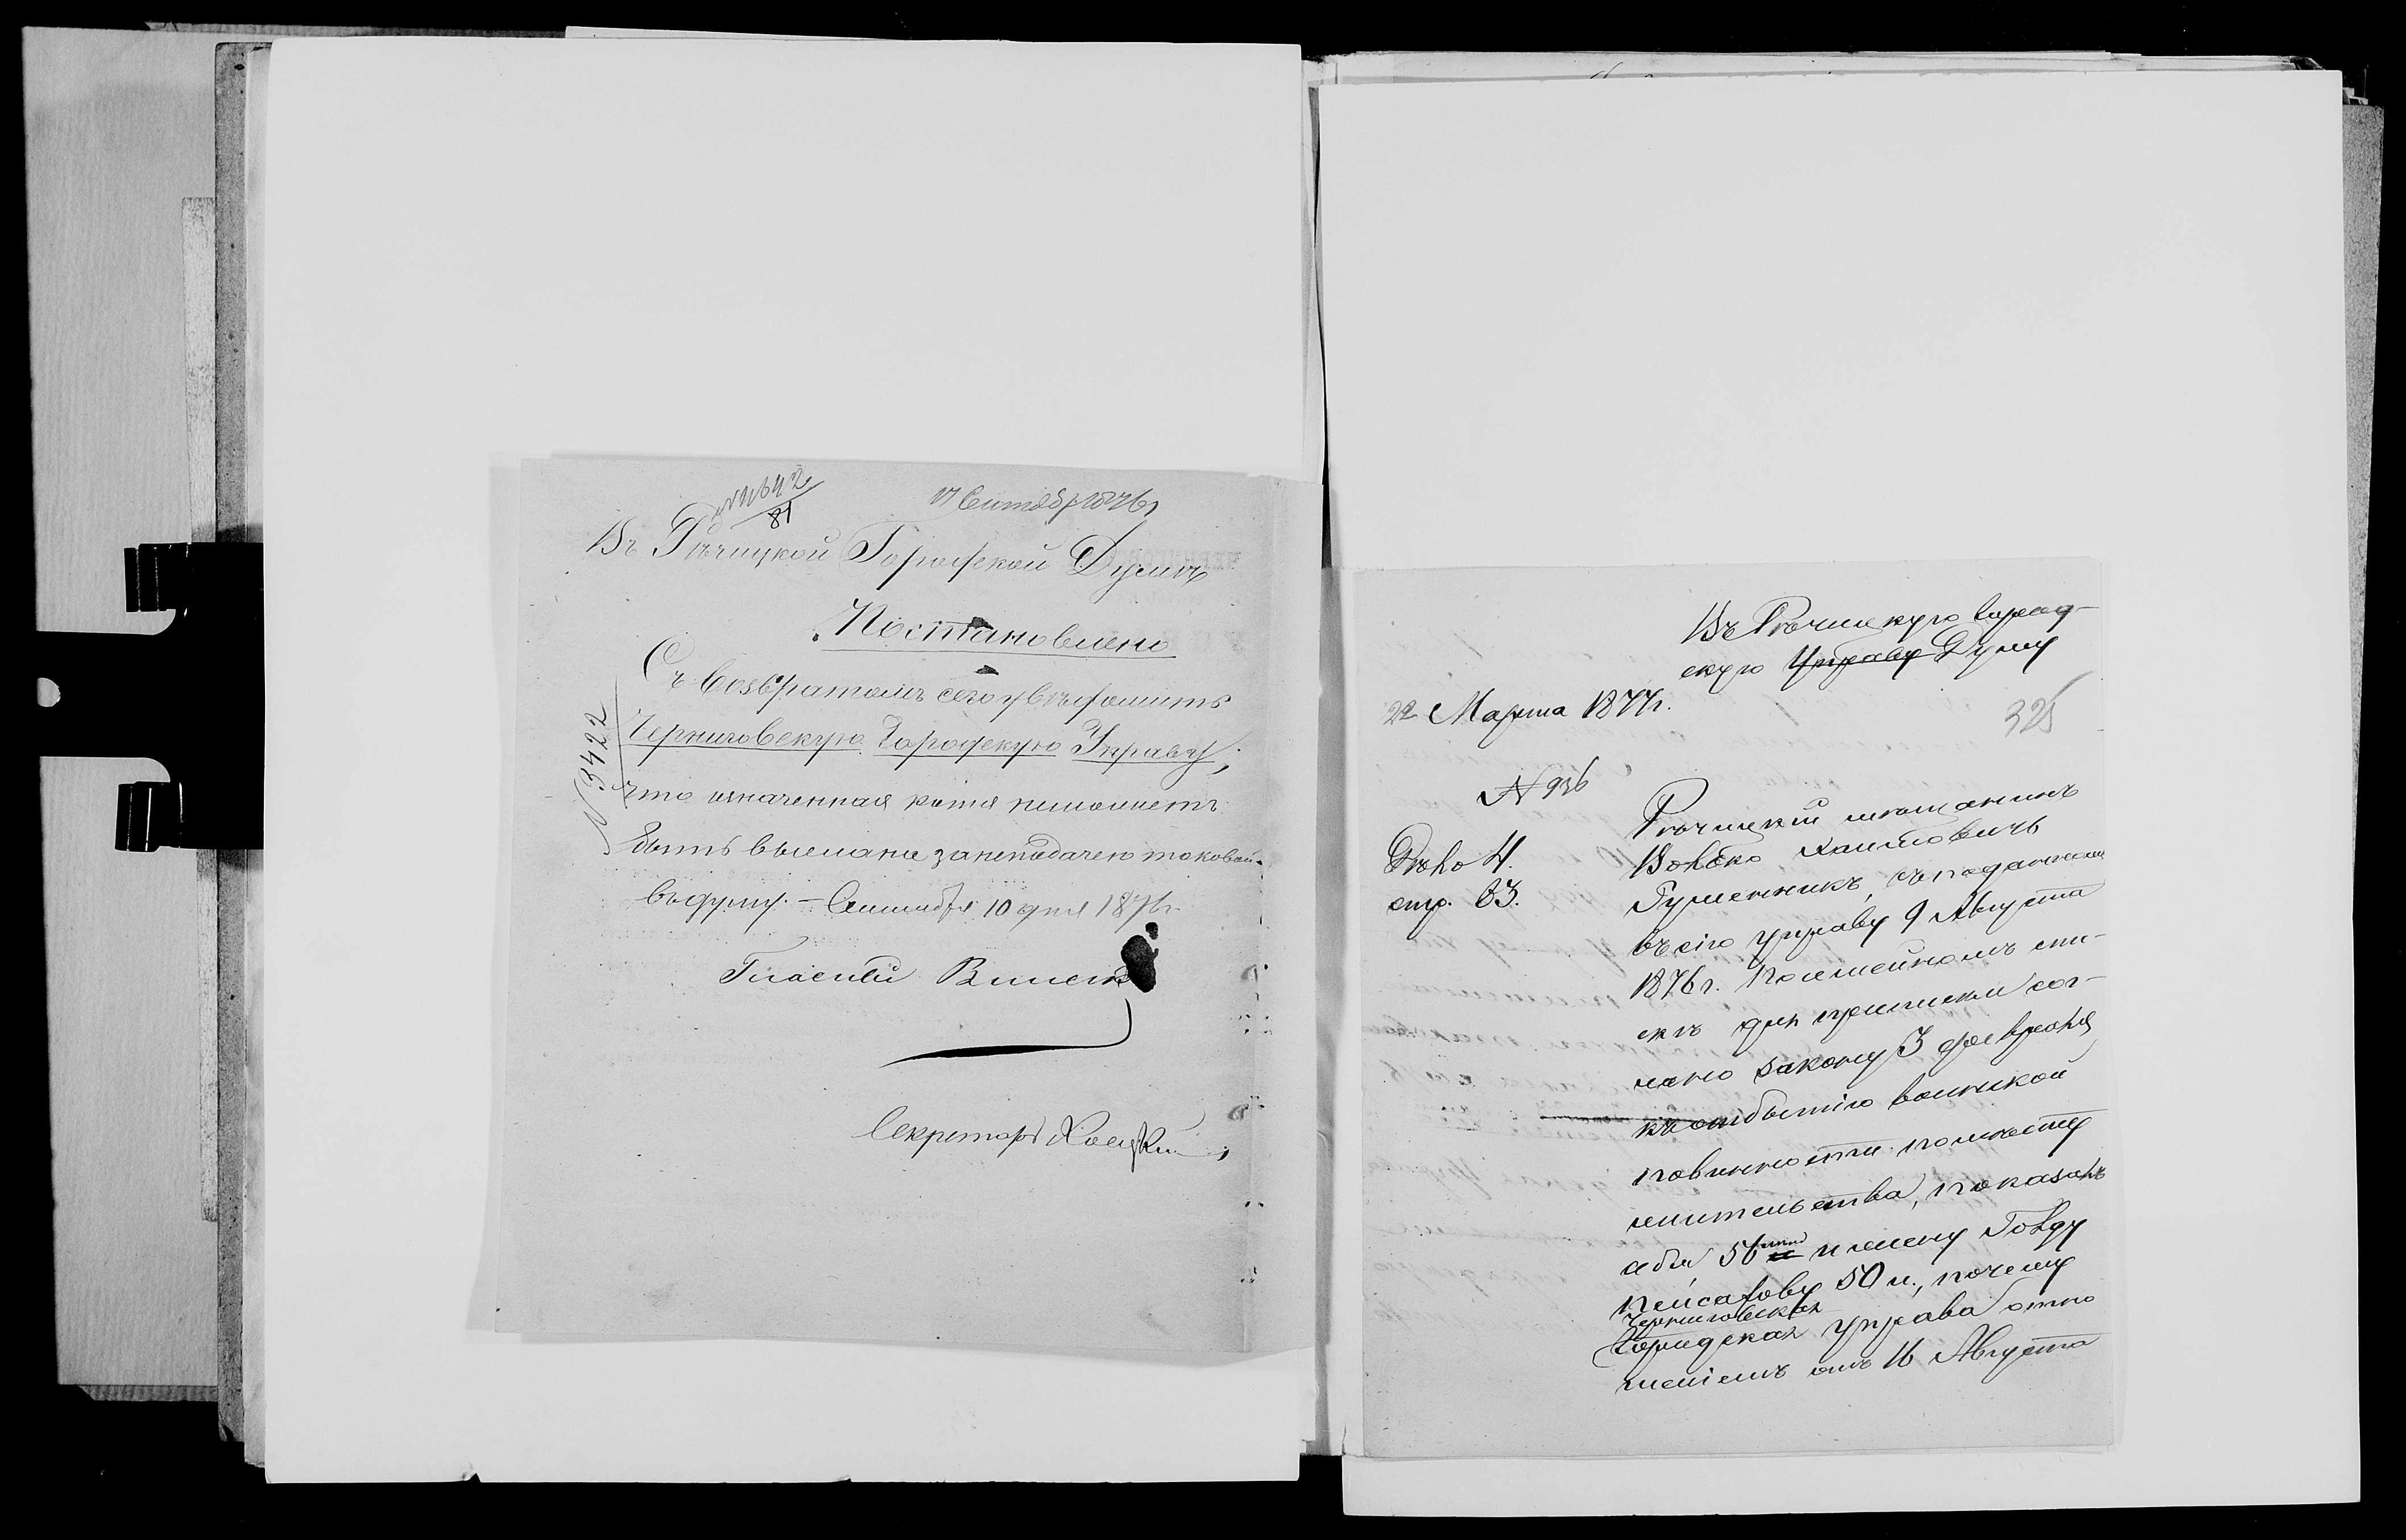 17 Сентября 1876 г
№ 11642
81
Въ Рѣчицкой Городской Думѣ
Постановлено
Съ возвратомъ сего увѣдомить
Черниговскую Городскую Управу,
что означенная копія неможетъ
быть выслана занеподачею таковой
въ думу. – Сентября 10 дня 1876 г.
№ 3422
Гласный
Секретарь
Въ Рѣчицкую Город-
скую Управу Думу
22 Марта 1877 г.
325
№ 936
Дѣло 4.
стр. 83.
Рѣчицкій мѣщанинъ
Вольбко Хаимовичъ
Гуменникъ, въ поданномъ
въ сію управу 9 Августа
1876 г. посемейномъ спи-
скѣ для приписки сог-
ласно закону 3 февраля
къ отбытію воинской
повинности по мѣсту
жительства, показалъ
себя 56 и жену Гольду
Пейсахову 50 л., почему
Черниговская
Городская управа отно
шеніемъ отъ 16 Августа